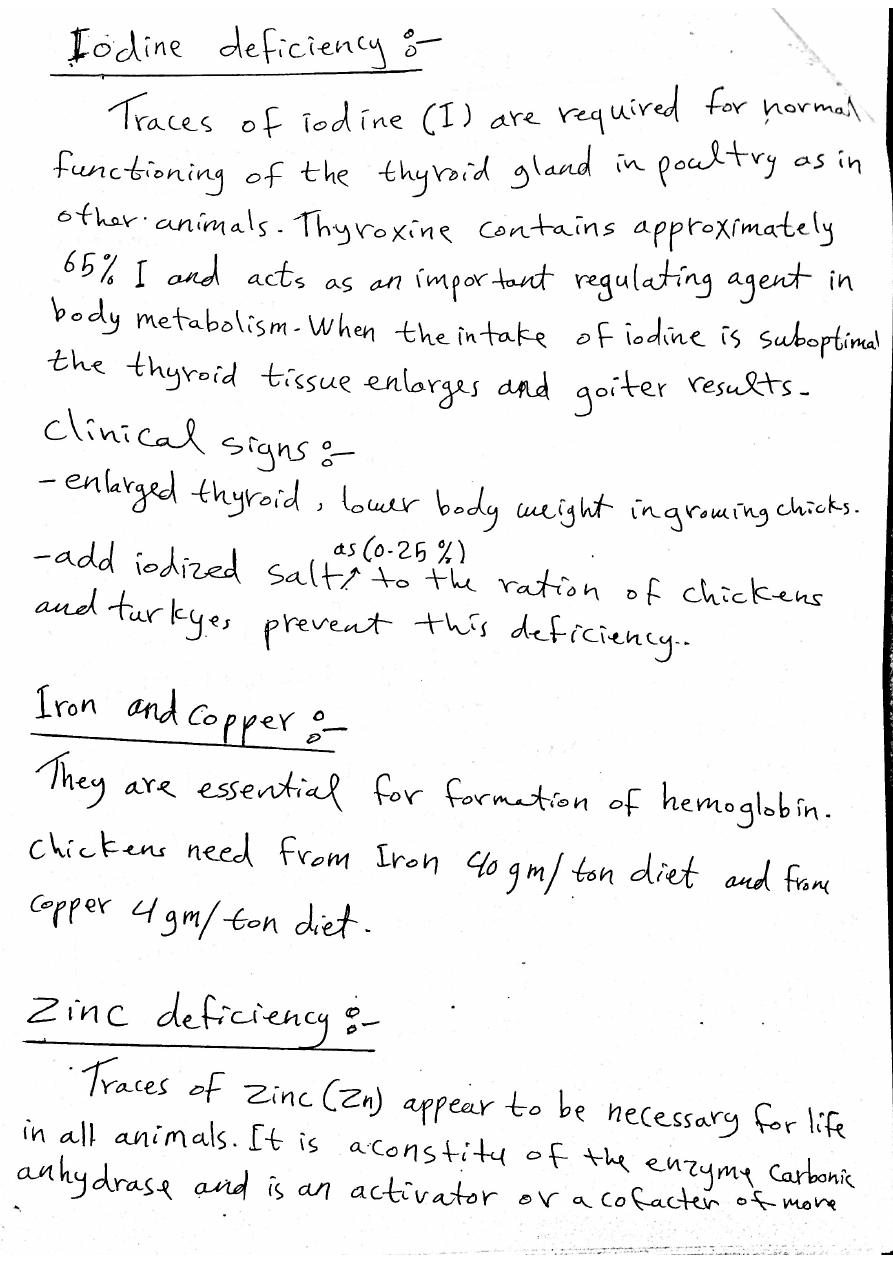 Iodine deficiency :-
Traces of iodine (I) are required for normal
functioning of the thyroid gland in poultry as in
other animals. Thyroxine contains approximately
65% I and acts as an important regulating agent in
body metabolism. When the intake of iodine is suboptimal
the thyroid tissue enlarges and goiter results.
Clinical signs :-
- enlarged thyroid, lower body weight in growing chicks.
- add iodized salt as (0.25 %) to the ration of chickens
and turkyes prevent this deficiency..
Iron and Copper :-
They are essential for formation of hemoglobin.
Chickens need from Iron 40 gm/ton diet and from
Copper 4 gm/ton diet.
Zinc deficiency :-
Traces of Zinc (Zn) appear to be necessary for life
in all animals. It is a constitu of the enzyme Carbonic
anhydrase and is an activator or a cofacter of more